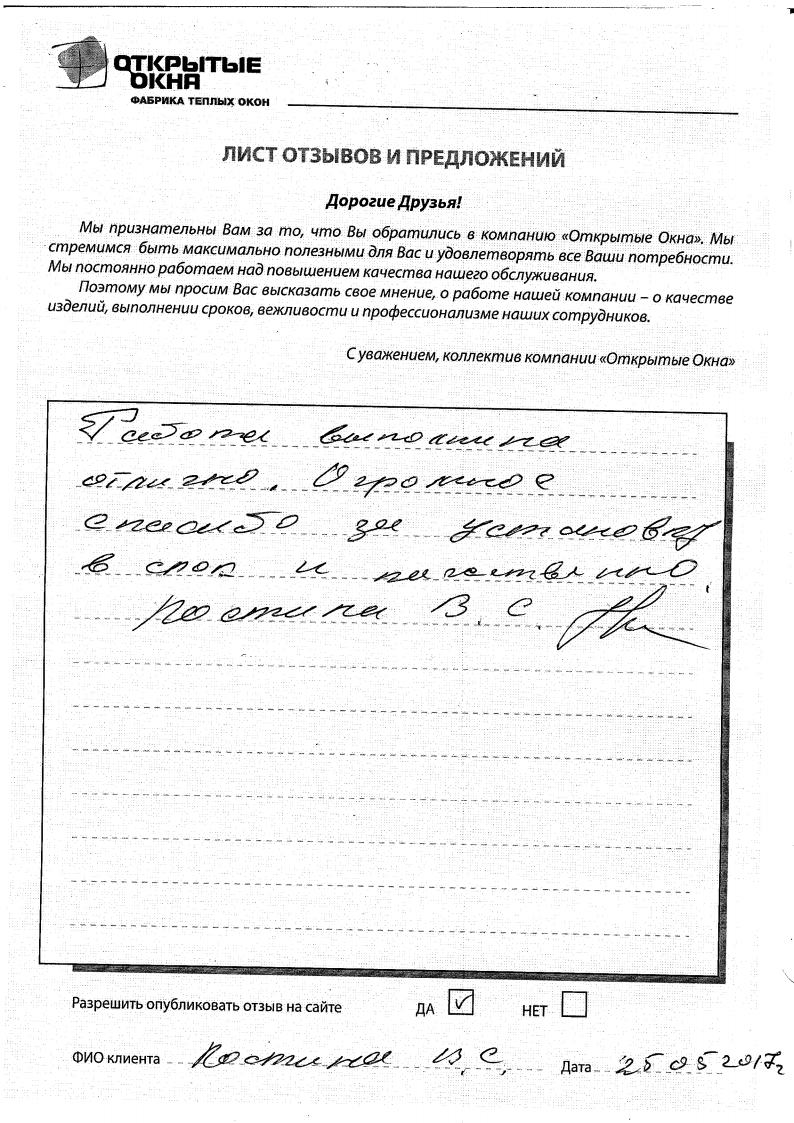 ОТКРЫТЫЕ
ОКНА
ФАБРИКА ТЕПЛЫХ ОКОН
ЛИСТ ОТЗЫВОВ И ПРЕДЛОЖЕНИЙ
Дорогие Друзья!
Мы признательны Вам за то, что Вы обратились в компанию «Открытые Окна». Мы
стремимся быть максимально полезными для Вас и удовлетворять все Ваши потребности.
Мы постоянно работаем над повышением качества нашего обслуживания.
Поэтому мы просим Вас высказать свое мнение, о работе нашей компании – о качестве
изделий, выполнении сроков, вежливости и профессионализме наших сотрудников.
С уважением, коллектив компании «Открытые Окна»
Работа выполнена
отлично. Огромное
спасибо за установку
в срок и качественно.
Костина В. С.
Разрешить опубликовать отзыв на сайте ДА ✓ НЕТ
ФИО клиента Костина В. С. Дата 25 05 2017г